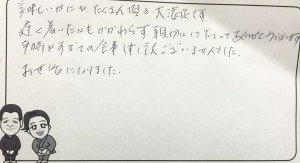 美味しいかにを、たくさん頂き大満足です
遅く着いたにもかかわらず親切にして下さってありがとうございます
9時をすぎての食事で申し訳ございませんでした。
お世話になりました。